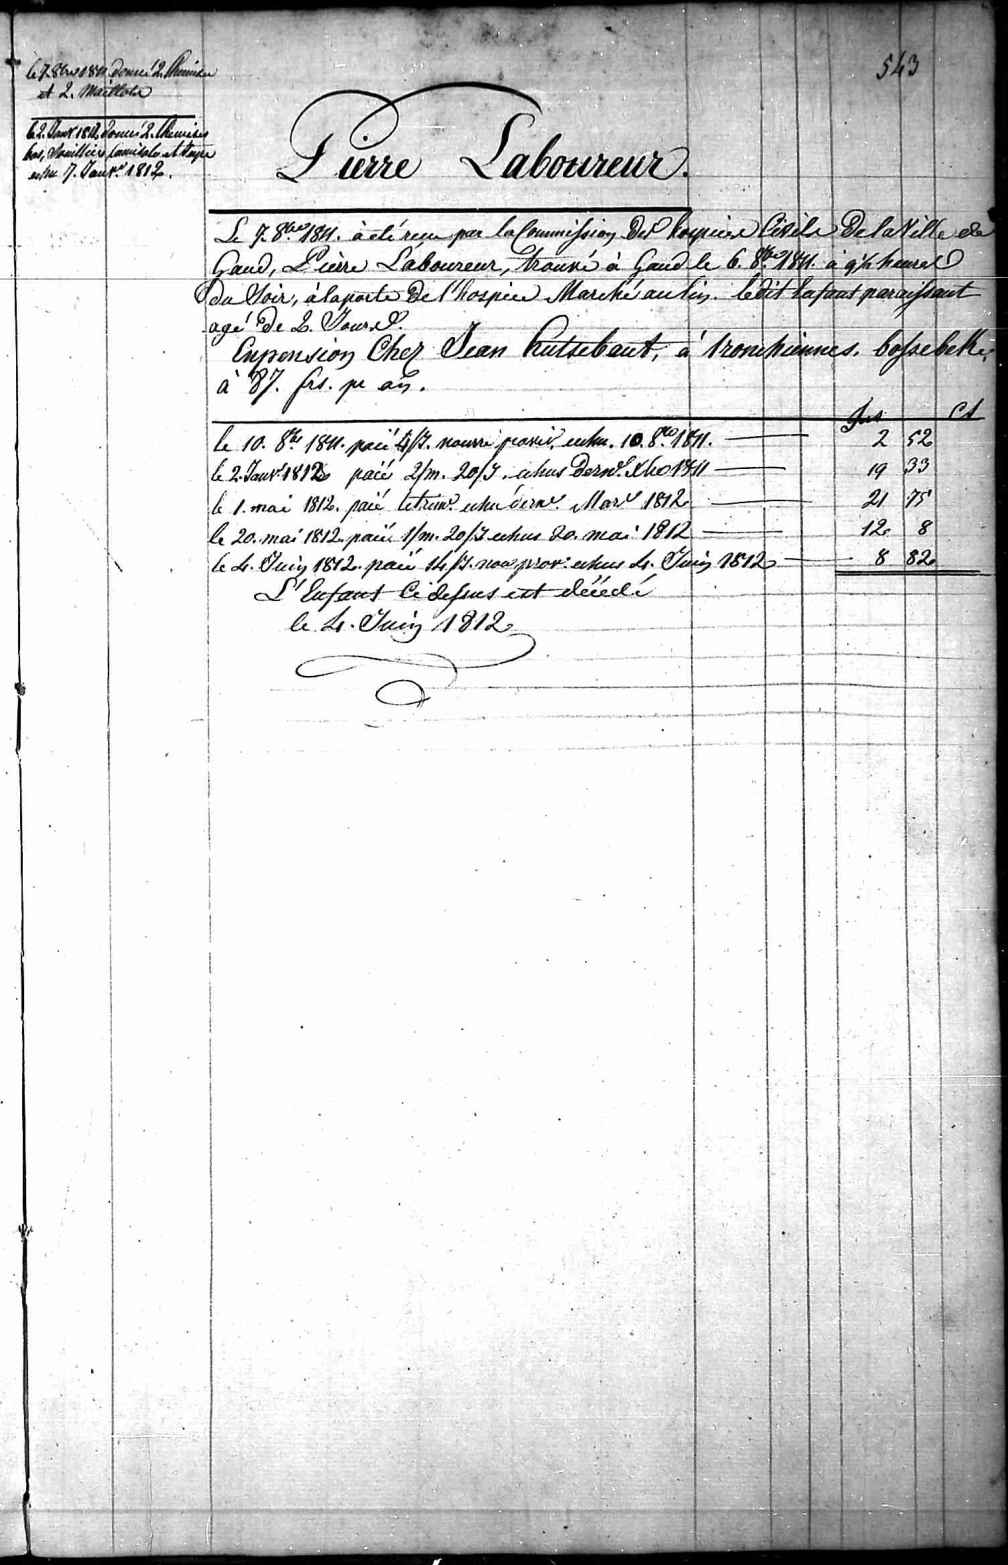 543
le 7. 8bre 1811 donné 2. Chemises
et 2. Maillots
le 2. Janv. 1812 donné 2. Chemises
bas, Camisole et
echu 7. Janvr. 1812.
Pierre Laboureur.
Le 7. 8bre 1811. a été reçu par la Commission Des hospices Civils De la Ville de
Gand, Pierre Laboureur, trouvé à Gand le 6. 8bre 1811. à 9½ heures
du Soir, à la porte De l'hospice Marché au lin. ledit Enfant paraissant
agé De 2. Jours.
Enpension Chez Jean hutsebaut, à tronchiennes. bossebeke,
à 87. frs. pr an.
frs Cs
le 10. 8bre 1811. paié 4/J. nourri provis. echu. 10. 8bre 1811. 2 52
le 2. Janvr 1812 paié 2/m. 20/J. echus Dernr. Xbre 1811 19 33
le 1. mai 1812. paié le trimr. echu dernr. Mars 1812 21 75
le 20. mai 1812. paié 1/m. 20/J echus 20. mai 1812 12 8
le 4. Juin 1812. paié 14/J. nou prov: echus 4. Juin 1812 8 82
L'Enfant Ci dessus est décédé
le 4. Juin 1812